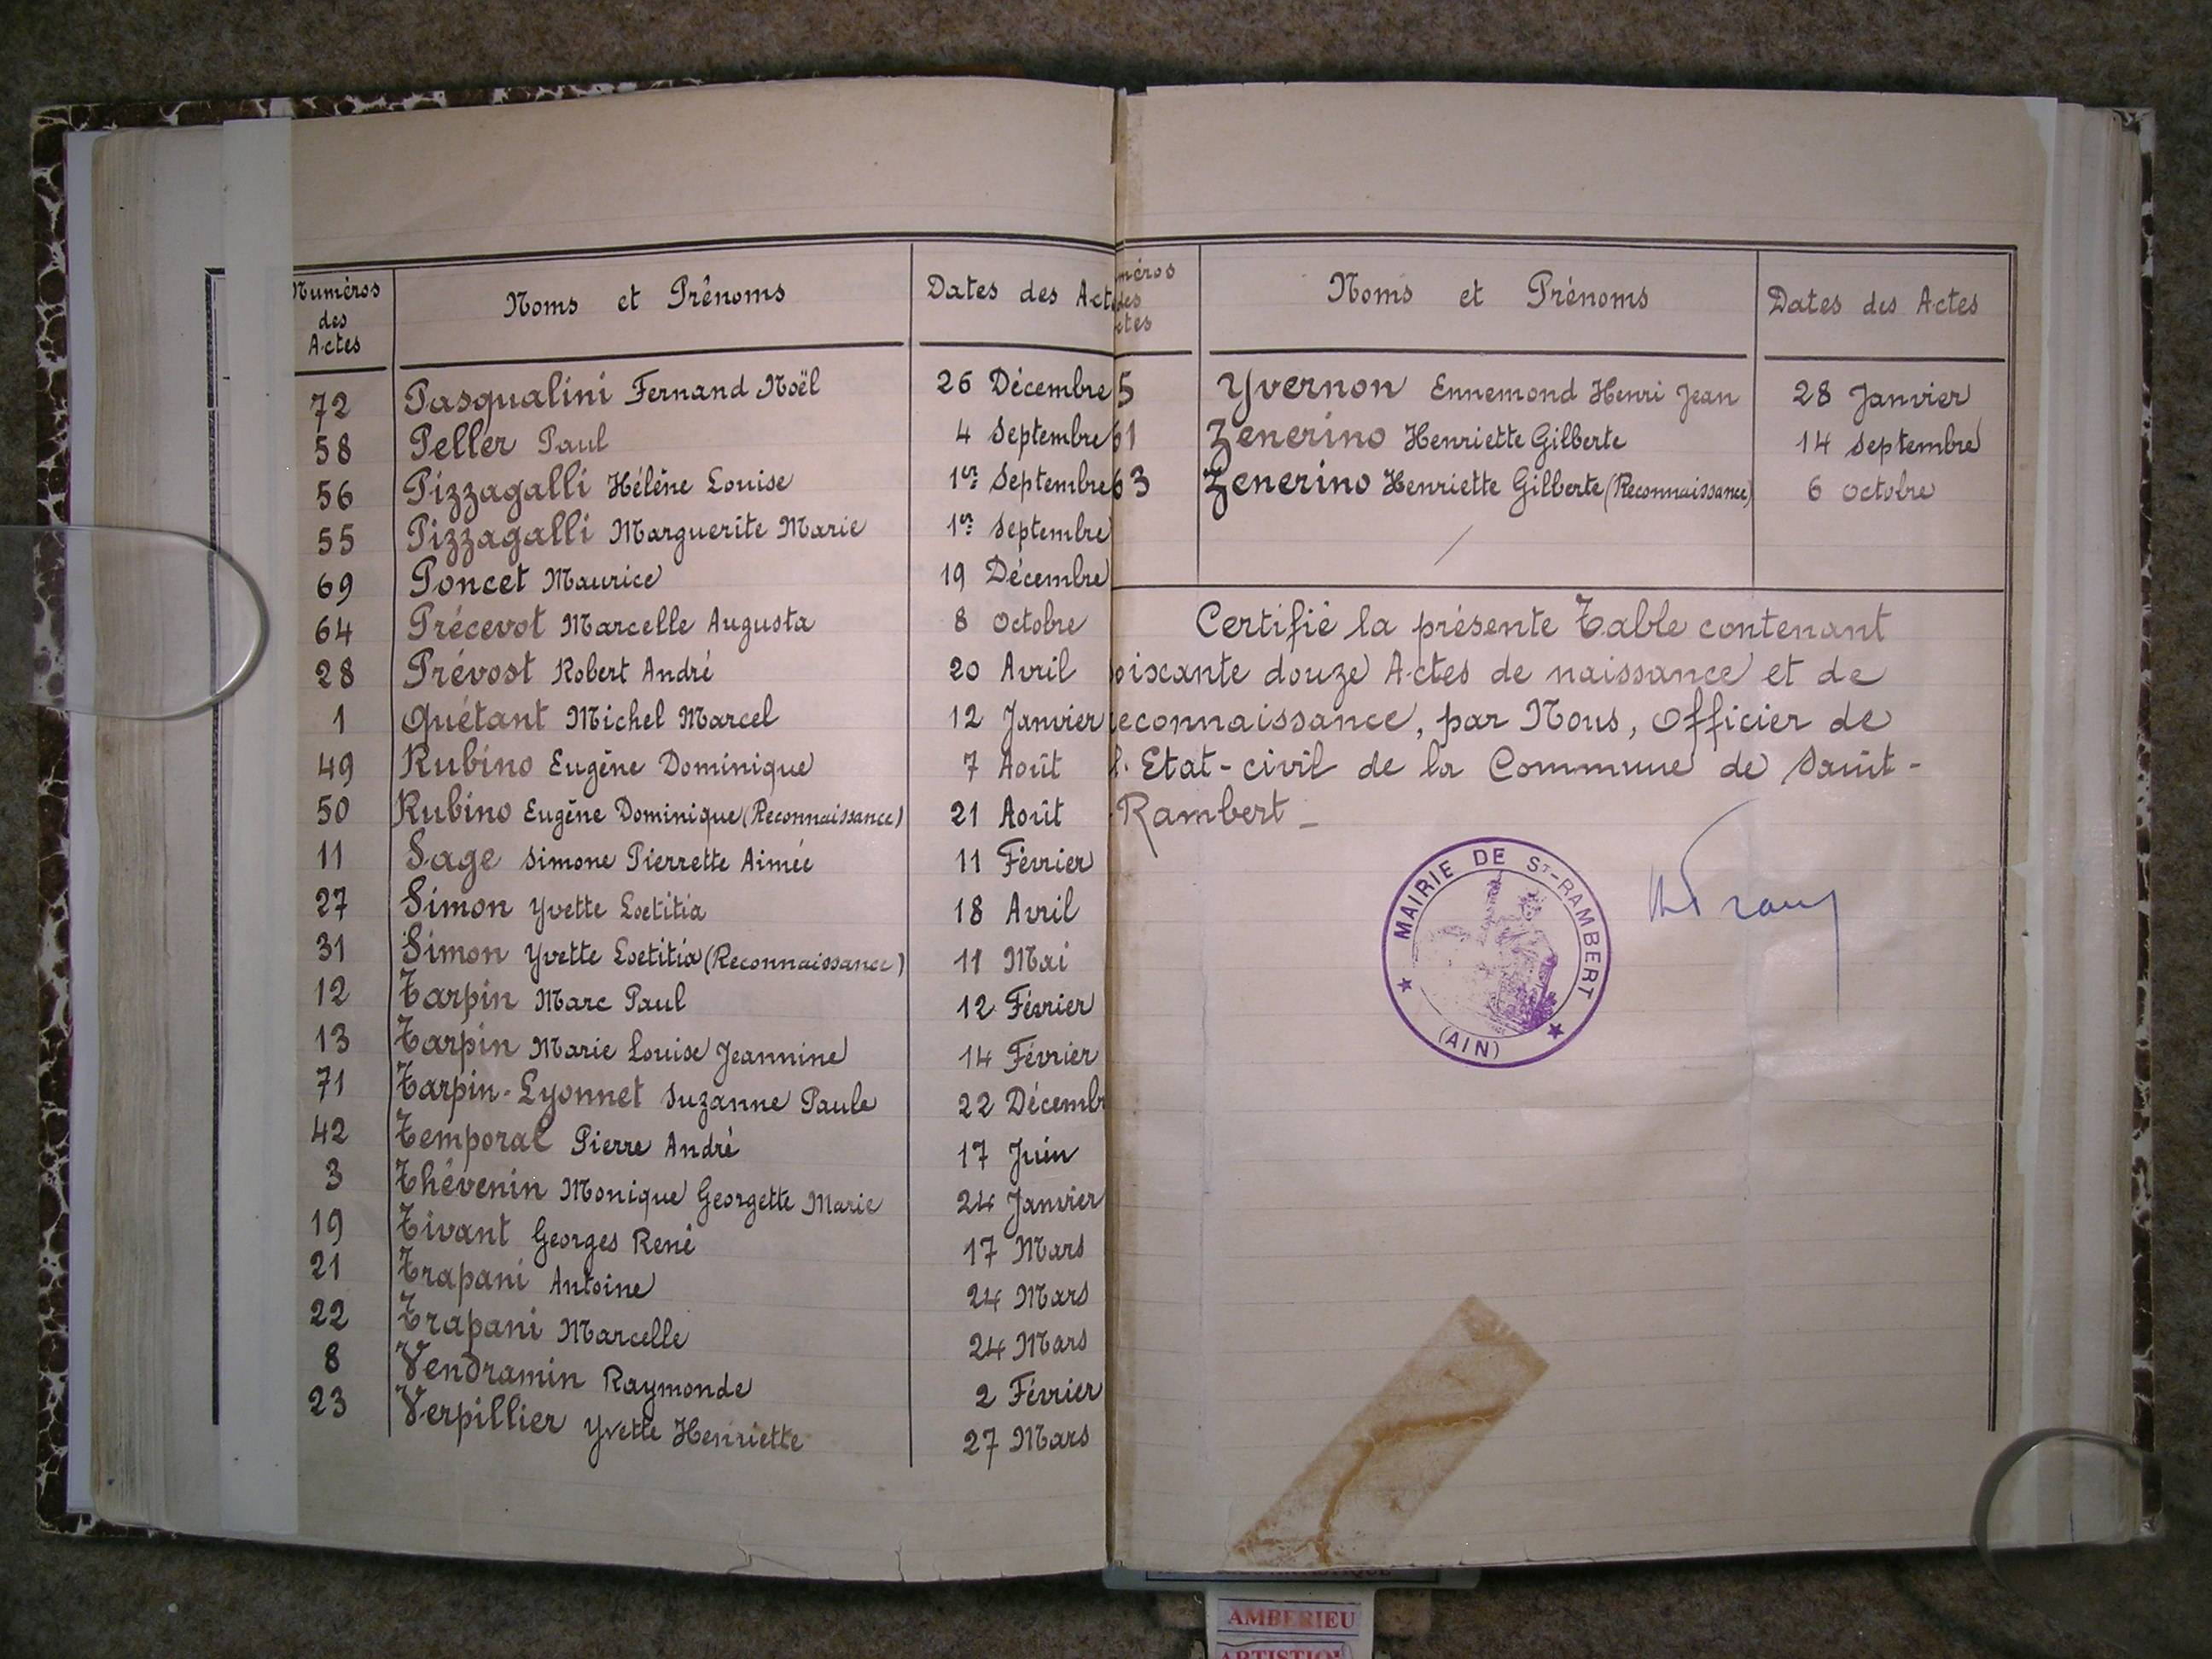 Numéros
des
Actes
Noms et Prénoms
Dates des Act
72 Pasqualini Fernand Noël 26 Décembre
58 Peller Paul 4 Septembre
56 Pizzagalli Hélène Louise 1er Septembre
55 Pizzagalli Marguerite Marie 1er Septembre
69 Poncet Maurice 19 Décembre
64 Précevot Marcelle Augusta 8 Octobre
28 Prévost Robert André 20 Avril
1 Quétant Michel Marcel 12 Janvier
49 Rubino Eugène Dominique 7 Août
50 Rubino Eugène Dominique (Reconnaissance) 21 Août
11 Sage Simone Pierrette Aimée 11 Février
27 Simon Yvette Loetitia 18 Avril
31 Simon Yvette Loetitia (Reconnaissance) 11 Mai
12 Tarpin Marc Paul 12 Février
13 Tarpin Marie Louise Jeannine 14 Février
71 Tarpin-Lyonnet Suzanne Paule 22 Décembr
42 Temporal Pierre André 17 Juin
3 Thévenin Monique Georgette Marie 24 Janvier
19 Tivant Georges René 17 Mars
21 Trapani Antoine 24 Mars
22 Trapani Marcelle 24 Mars
8 Vendramin Raymonde 2 Février
23 Verpillier Yvette Henriette 27 Mars
méros
des
ctes
Noms et Prénoms
Dates des Actes
5 Yvernon Ennemond Henri Jean 28 Janvier
61 Zenerino Henriette Gilberte 14 Septembre
63 Zenerino Henriette Gilberte (Reconnaissance) 6 Octobre
Certifié la présente Table contenant
oixante douze Actes de naissance et de
reconnaissance, par Nous, Officier de
l'Etat-civil de la Commune de Saint-
Rambert _
MAIRIE DE ST-RAMBERT
(AIN)
AMBERIEU